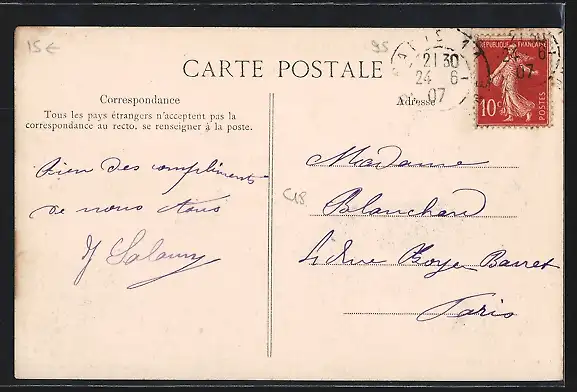 15€
95
PARIS
21 30
24 6
07
21 30
24 6
07
RÉPUBLIQUE FRANÇAISE
10c
POSTES
CARTE POSTALE
Correspondance
Tous les pays étrangers n'acceptent pas la
correspondance au recto. se renseigner à la poste.
Bien des compliments
de nous tous
Adresse
Madame
Blanchard
Rue Royer Barret
Paris